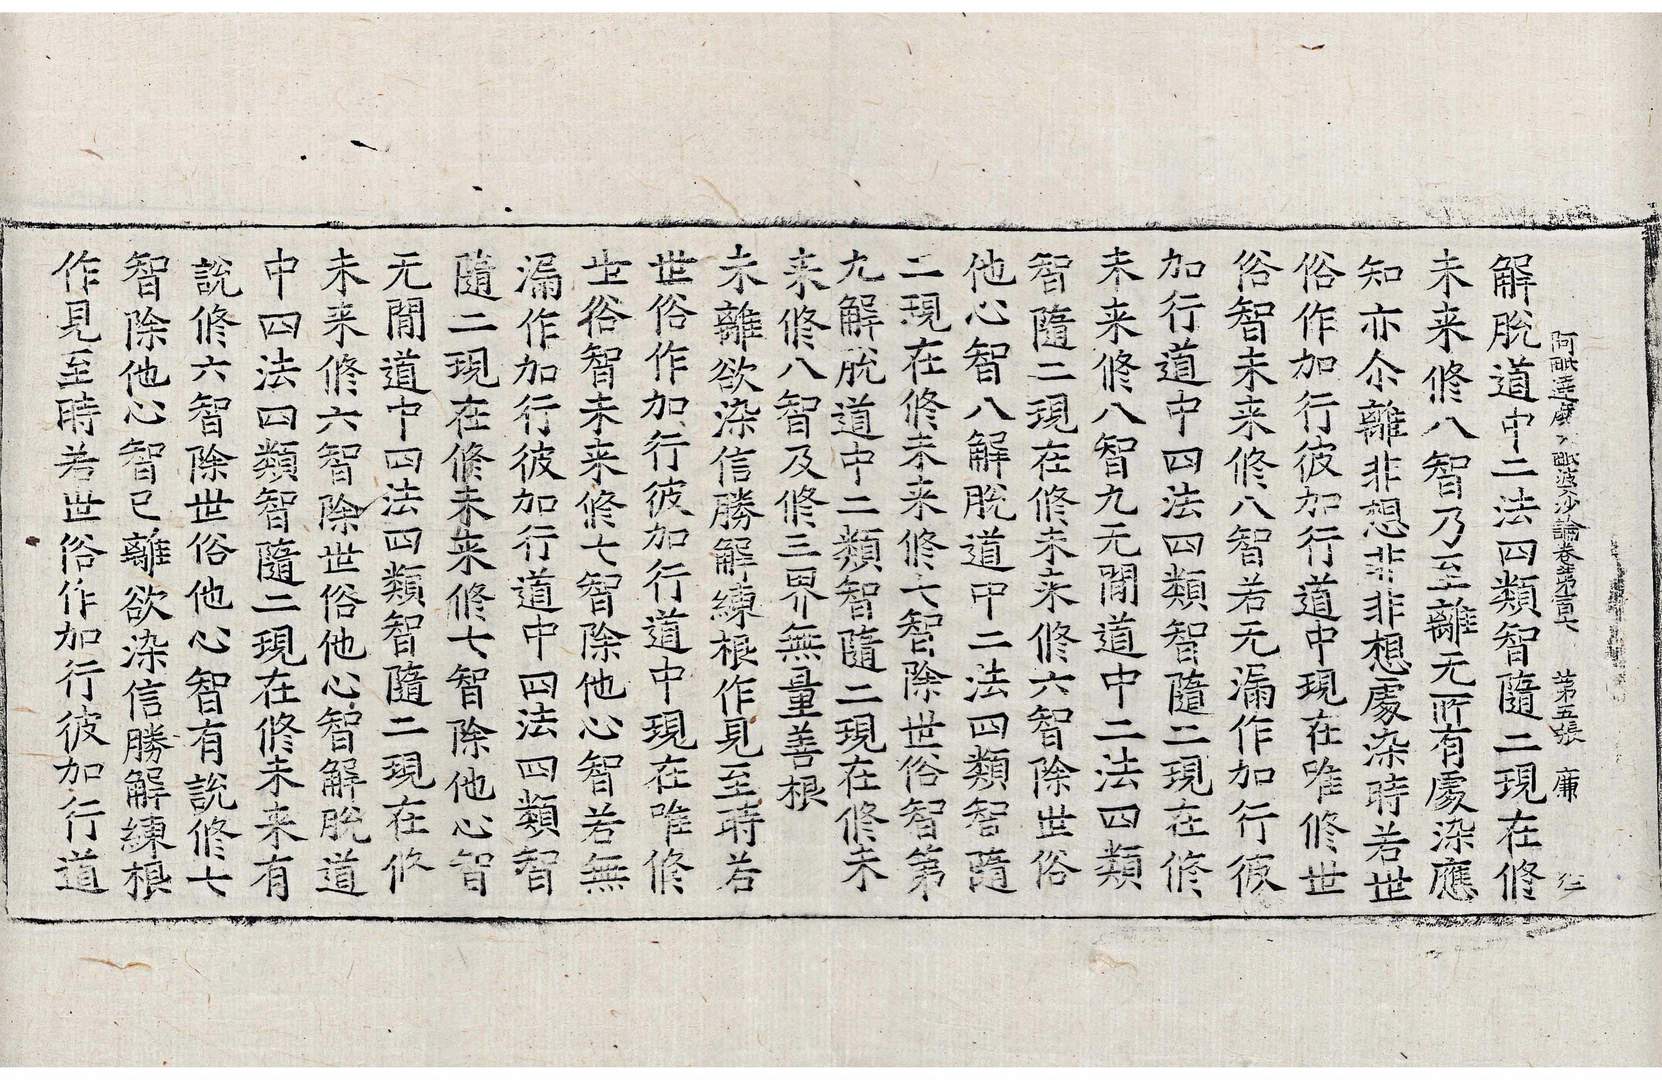 阿毗達磨大毗婆沙論卷第百六 第五張 廉
解脫道中二法四類智隨二現在修
未来修八智乃至離无所有處染應
知亦尒離非想非非想處染時若世
俗作加行彼加行道中現在唯修世
俗智未来修八智若无漏作加行彼
加行道中四法四類智隨二現在修
未来修八智九无閒道中二法四類
智隨二現在修未来修六智除世俗
他心智八解脫道中二法四類智隨
二現在修未来修七智除世俗智第
九解脫道中二類智隨二現在修未
来修八智及修三界無量善根
未離欲染信勝解練根作見至時若
世俗作加行彼加行道中現在唯修
世俗智未来修七智除他心智若無
漏作加行彼加行道中四法四類智
隨二現在修未来修七智除他心智
无閒道中四法四類智隨二現在修
未来修六智除世俗他心智解脫道
中四法四類智隨二現在修未来有
說修六智除世俗他心智有說修七
智除他心智已離欲染信勝解練根
作見至時若世俗作加行彼加行道